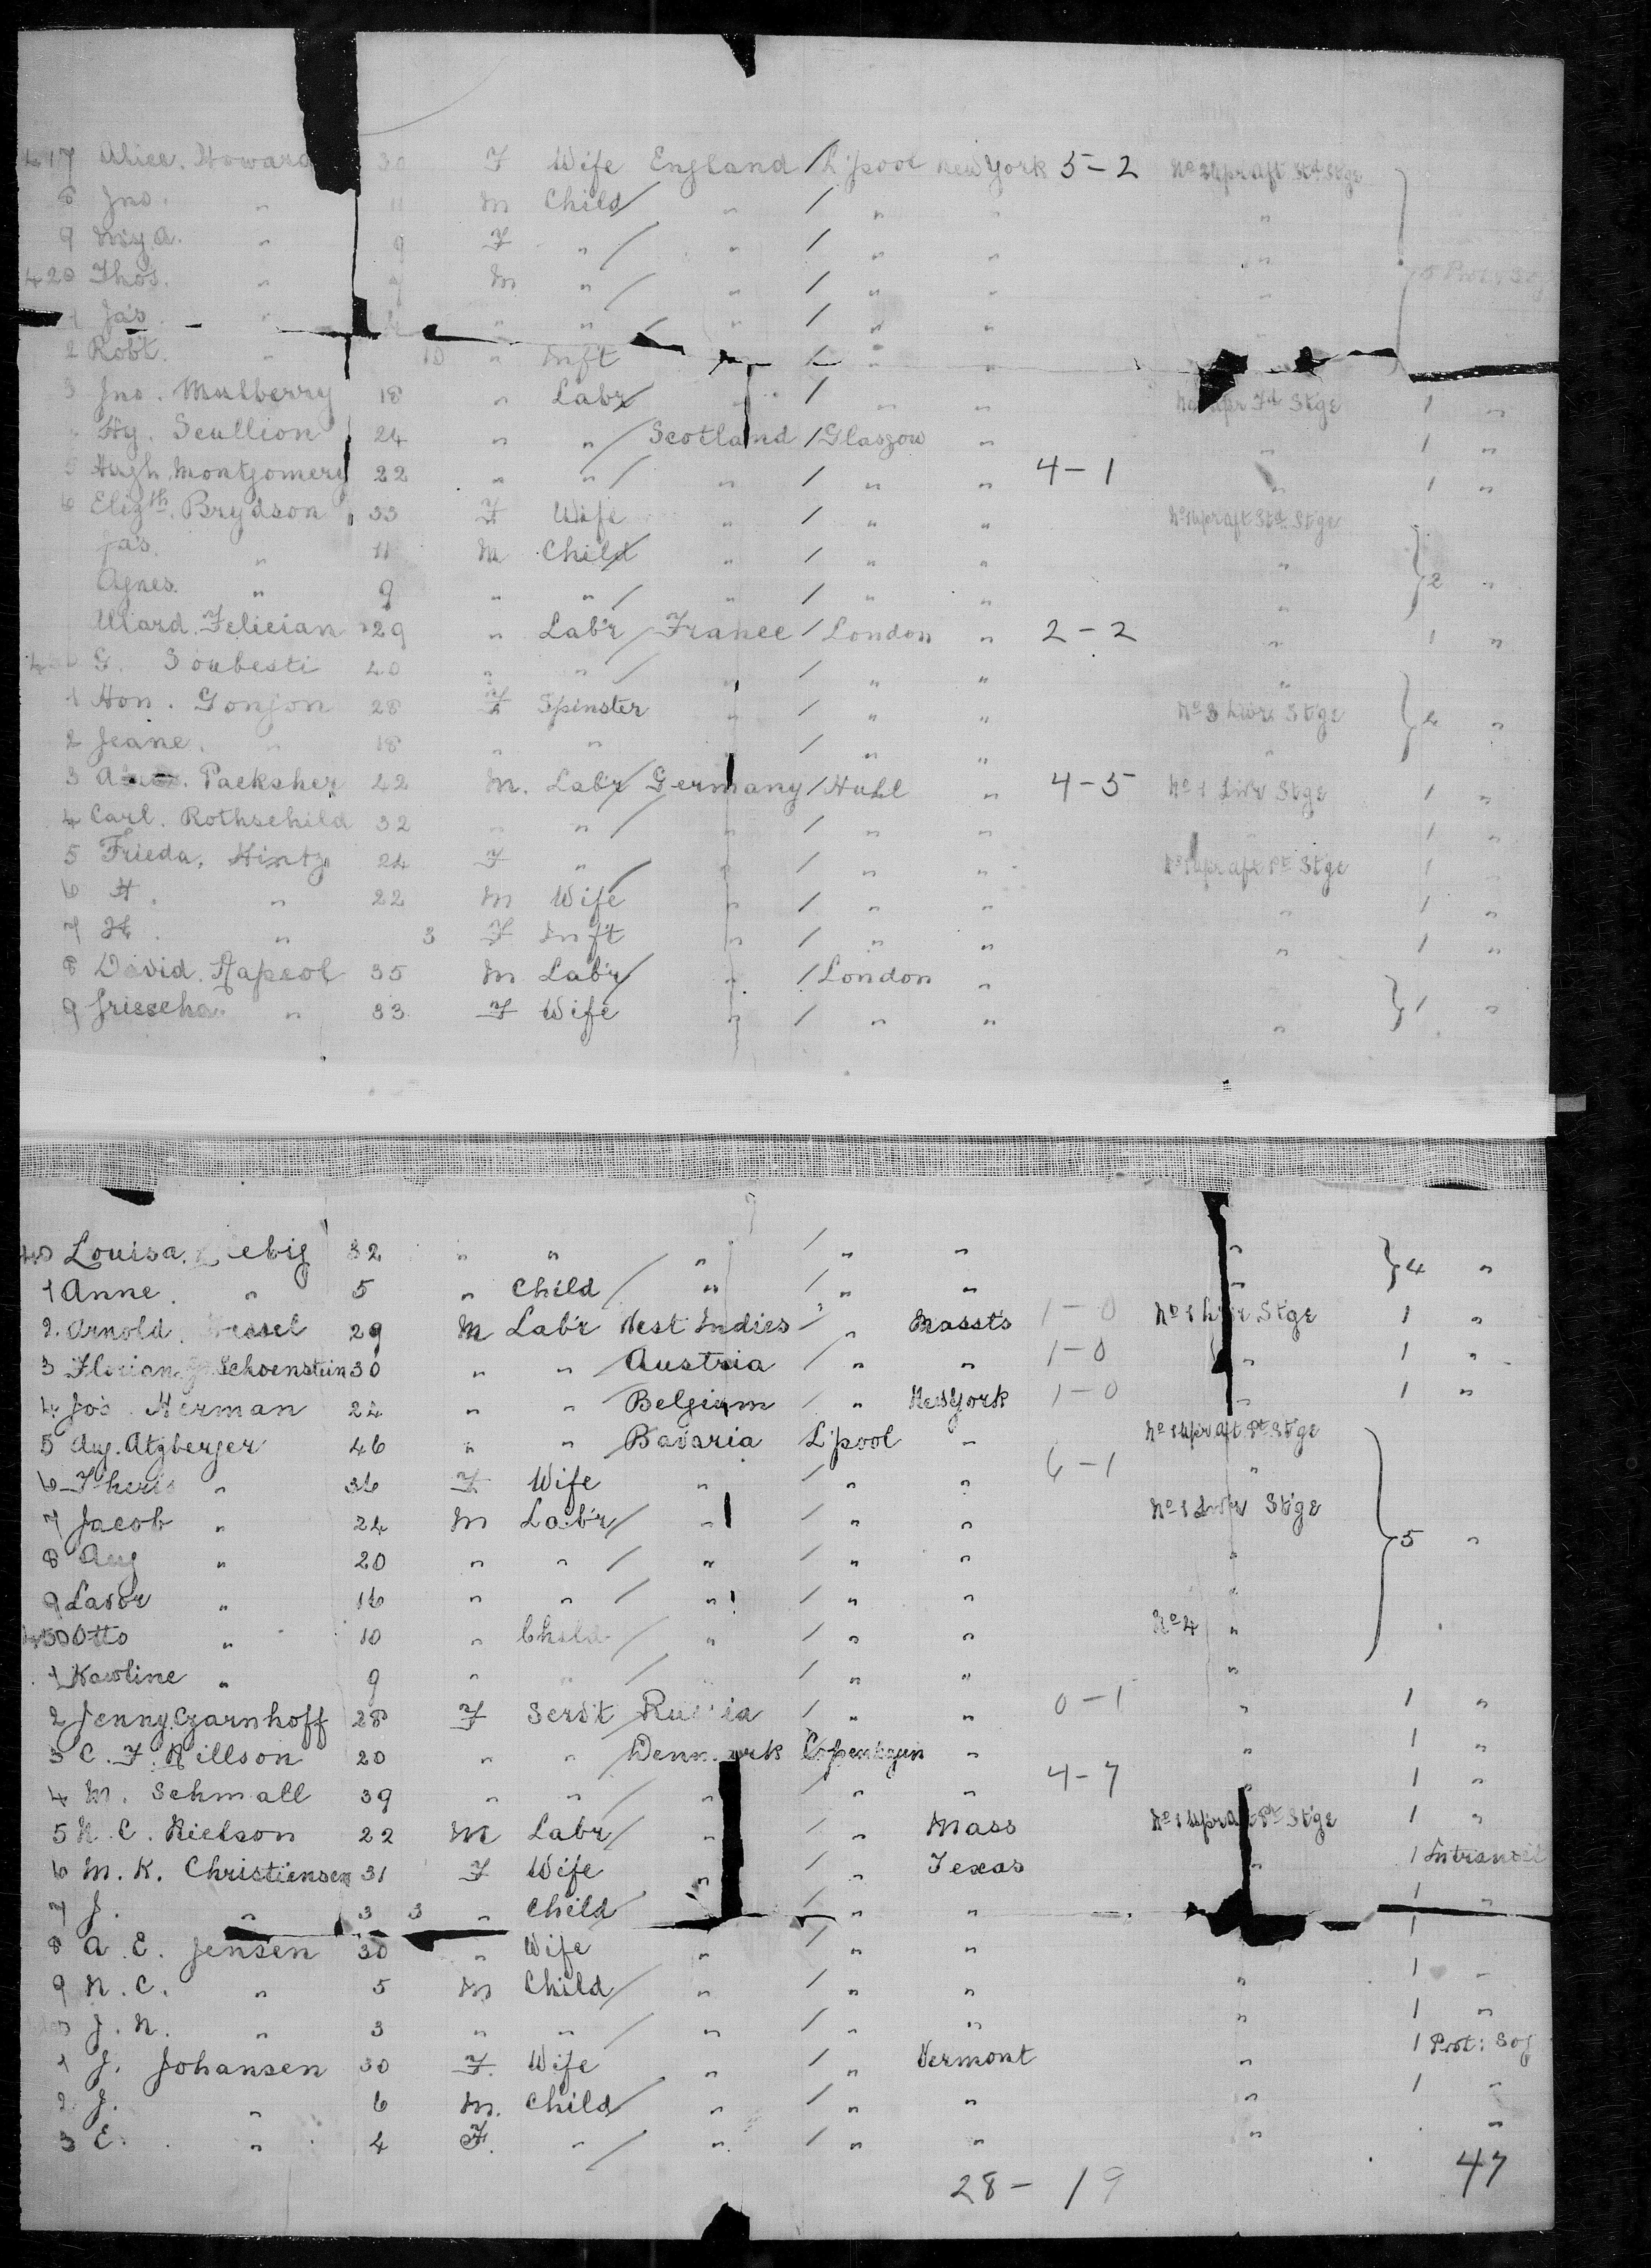 417 Alice. Howard 30 F Wife England / L'pool New York 5-2 No 2 upr aft Std. Stge
8 Jno. " 11 M Child / " / " " "
9 My A. " 9 F " / " / " " "
420 Thos. " 7 M " / " / " " " 5 Prot: Soj
1 Jas. " " " / " / " "
2 Robt. " 10 " Inft " / " "
3 Jno. Mulberry 18 " Labr " / " " Fd Stge 1 "
Hy. Scullion 24 " " / Scotland / Glasgow " " 1 "
5 Hugh. Montgomery 22 " " / " / " " 4-1 " 1 "
6 Elizth. Brydson 33 F Wife " / " " No 1 upr aft Std. Stge
Jas. " 11 M Child " / " " " } 2 "
Agnes. " 9 " " / " / " " "
Uliard. Felician 29 " Lab'r / France / London " 2-2 " 1 "
G. Soubesti 40 " " / " / " " "
1 Hon. Gonjon 28 F Spinster " / " " No 3 Lwr Stge } 4 "
2 Jeane. " 18 " " " / " " "
3 Packsher 42 M. Lab'r / Germany / Hull " 4-5 No 1 Lwr Stge 1 "
4 Carl. Rothschild 32 " " / " / " " " 1 "
5 Frieda. Hintz 24 F " / " / " " No 1 upr aft Pt Stge 1 "
6 H. " 22 M Wife " / " " " 1 "
7 H. " 3 F Inft " / " " " 1 "
8 David. Rapeol 35 M Lab'r / " / London "
9 Friescha. " 33 F Wife " / " " " } 1 "
9
40 Louisa. ebig 32 " " " / " " " } 4 "
1 Anne. " 5 " Child / " / " " "
2. Arnold. 29 M Lab'r West Indies / " Masst's 1-0 No 1 Lwr Stge 1 "
3 Florian. Schoenstein 30 " " Austria / " " 1-0 " 1 "
4 Jos. Herman 24 " " Belgium / " New York 1-0 " 1 "
5 Aug. Atzberger 46 " " Bavaria L'pool " No 1 upr aft Pt. Stge
6 Theris " 36 F Wife " / " " 6-1 "
7 Jacob " 24 M Lab'r / " / " " No 1 Lwr Stge } 5 "
8 Aug " 20 " " / " / " " "
9 Lavor " 16 " " / " / " " "
450 Otto " 10 " Child / " / " " No 4 "
1 Kawline " 9 " " / " / " " "
2 Jenny. Czarnhoff 28 F Serv't Russia / " " 0-1 " 1 "
3 C. F. Nillson 20 " " / Denmark Copenhagen " " 1 "
4 M. Schmall 39 " " / " / " " 4-7 " 1 "
5 N. C. Nielson 22 M Labr / " / " Mass No 1 upr aft Pt Stge 1 "
6 M. K. Christiensen 31 F Wife " / " Texas " 1 Intransit
7 J. " 3 3 " Child / " / " " 1 "
8 A. E. Jensen 30 " Wife " / " " 1
9 N. C. " 5 M Child / " / " " " 1 "
J. N. " 3 " " / " / " " " 1 "
1 J. Johansen 30 F. Wife " / " Vermont " 1 Prot: Soj
2. J. " 6 M. Child / " / " " " 1 "
3 E. " 4 F. " / " / " " " "
28-19 47